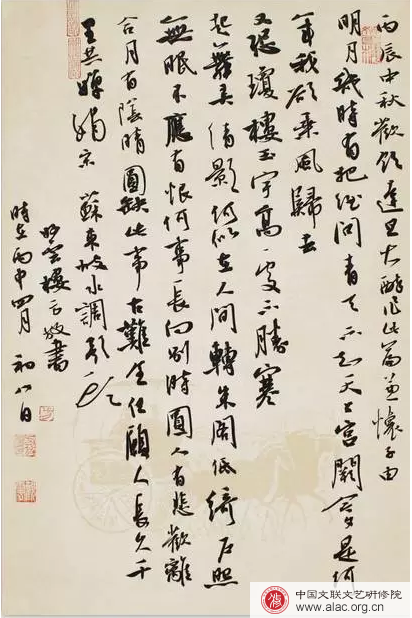 丙辰中秋歡飲達旦大醉作此篇兼懷子由
明月幾時有把酒問青天不知天上宮闕今夕是何
年我欲乘風歸去
又恐瓊樓玉宇高處不勝寒
起舞弄清影何似在人間轉朱閣低綺戶照
無眠不應有恨何事長向別時圓人有悲歡離
合月有陰晴圓缺此事古難全但願人長久千
里共嬋娟 宋 蘇東坡水調歌
樓 敬書
時在丙申四月初八日
中国文联文艺研修院
www.alac.org.cn